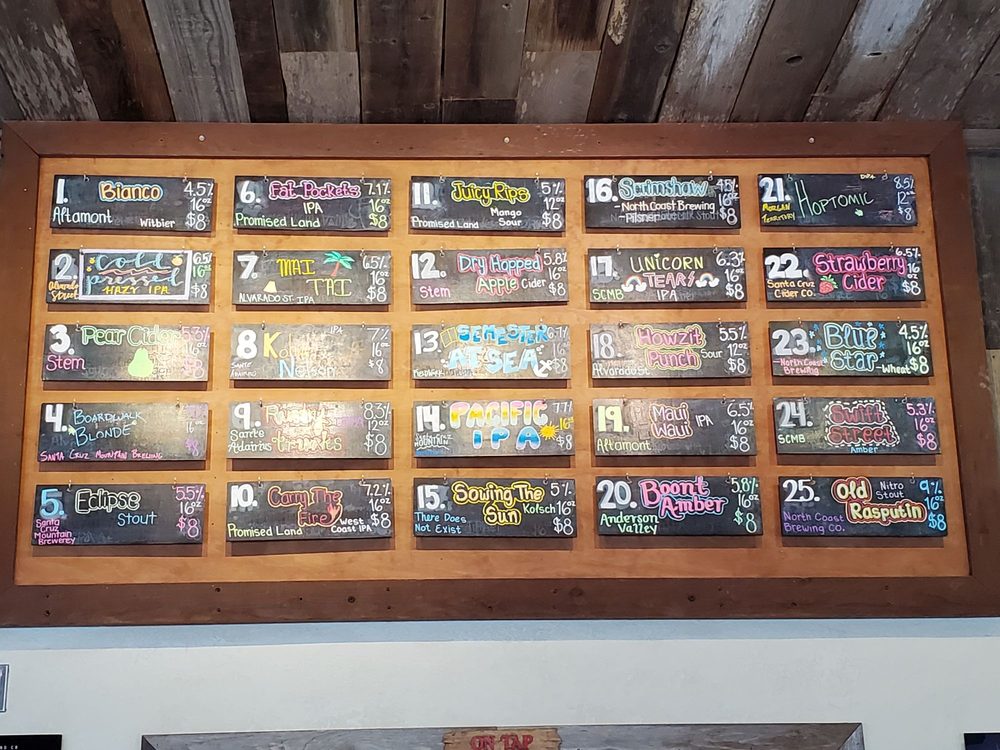 1. Bianco 4.5%
16oz
Altamont Witbier $8
2. Cold
pressed
HAZY IPA
Alvarado
Street
$8
3. Pear Cider 5.3%
16oz
Stem $8
4. BOARDWALK
BLONDE
SANTA CRUZ MOUNTAIN BREWING
$8
5. Eclipse 5.5%
Stout 16oz
Santa
Cruz
Mountain
Brewerey
$8
6. Fat Pockets 7.1%
IPA 16oz
Promised Land $8
7. MAI
TAI
6.5%
16oz
ALVARADO ST. IPA $8
8. IPA 7%
16oz
SANTE
ADAIRIUS
Nelson $8
9. 8.3%
12oz
Sante
Adairius
$8
10. Carry The
Fire
7.2%
16oz
Promised Land West
Coast IPA
$8
11. Juicy Rips 5%
12oz
Promised Land Mango
Sour
$8
12. Dry Hopped
Apple Cider
5.8%
16oz
Stem $8
13. SEMESTER
AT SEA
$8
14. PACIFIC
IPA
$8
15. Sowing The
Sun
5%
Kolsch 16oz
There Does
Not Exist
$8
16. Scrimshaw
North Coast Brewing
Pilsner
16oz
$8
17. UNICORN
TEARS
6.3%
16oz
SCMB IPA $8
18. Howzit
Punch
5.5%
Sour 12oz
Alvarado St. $8
19. Maui
Waui
IPA 6.5%
16oz
Altamont $8
20. Boont
Amber
5.8%
16oz
Anderson
Valley
$8
21. HOPTOMIC
DIPA
8.5%
12oz
MORGAN
TERRITORY
$8
22. Strawberry
Cider
6.5%
16oz
Santa Cruz
Cider Co.
$8
23. Blue
Star
4.5%
16oz
North Coast
Brewing
-Wheat $8
24. Swift
Street
5.3%
16oz
SCMB Amber $8
25. Old
Rasputin
Nitro
Stout
9%
16oz
North Coast
Brewing Co.
$8
ON TAP